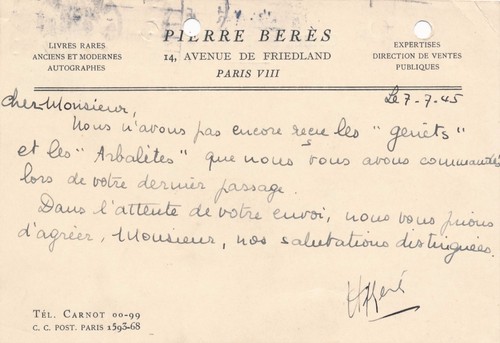 PIERRE BERÈS
LIVRES RARES
ANCIENS ET MODERNES
AUTOGRAPHES
14, AVENUE DE FRIEDLAND
PARIS VIII
EXPERTISES
DIRECTION DE VENTES
PUBLIQUES
Le 7-7-45
Cher Monsieur,
Nous n'avons pas encore reçu les "genêts"
et les "Arbalètes" que nous vous avons commandés
lors de votre dernier passage.
Dans l'attente de votre envoi, nous vous prions
d'agréer, Monsieur, nos salutations distinguées.
TÉL. CARNOT 00-99
C. C. POST. PARIS 1593-68